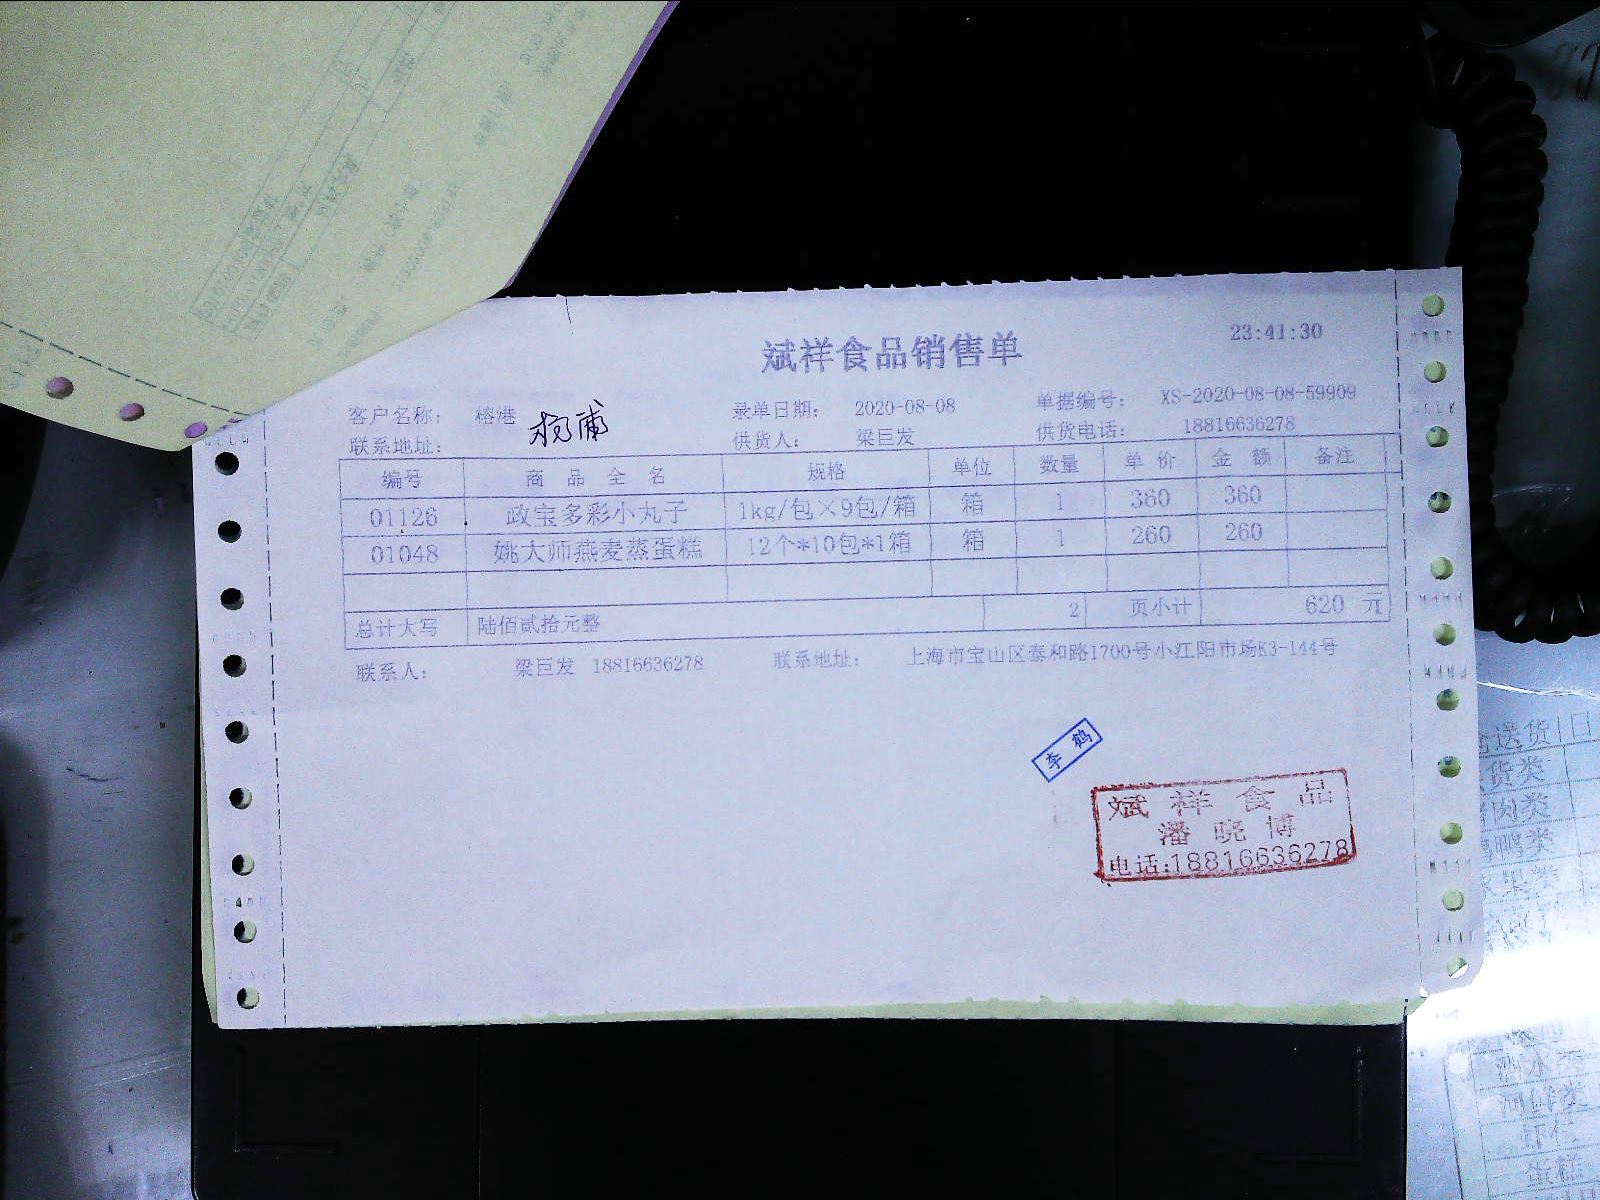 23:41:30
斌祥食品销售单
客户名称: 榕港 杨浦 录单日期: 2020-08-08 单据编号: XS-2020-08-08-59909
联系地址: 供货人: 梁巨发 供货电话: 18816636278
编号 商品全名 规格 单位 数量 单价 金额 备注
01126 政宝多彩小丸子 1kg/包×9包/箱 箱 1 360 360
01048 姚大师燕麦蒸蛋糕 12个*10包*1箱 箱 1 260 260
总计大写 陆佰贰拾元整 2 页小计 620 元
联系人: 梁巨发 18816636278 联系地址: 上海市宝山区泰和路1700号小江阳市场K3-144号
李鹤
斌祥食品
潘晓博
电话:18816636278
送货 日
货类
肉类
鸭类
蛋糕